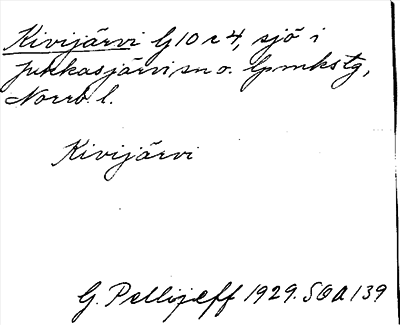 Kivijärvi G 10 r 4, sjö i
Jukkasjärvi sn o. lpmkstg,
Norrb. l.
Kivijärvi
G. Pellijeff 1929. SOA 139